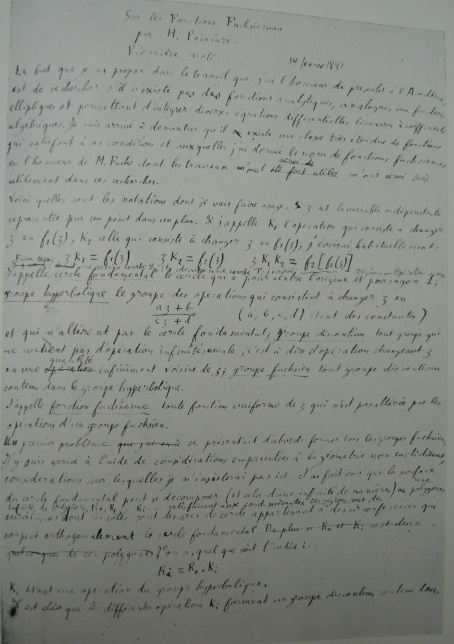 Sur les Fonctions Fuchsiennes
par H. Poincaré.
Première note.
14 février 1881
Le but que je me propose dans le travail que j'ai l'honneur de présenter à l'Académie,
est de rechercher s'il n'existe pas des fonctions analytiques, analogues aux fonctions
elliptiques et permettant d'intégrer diverses équations différentielles linéaires à coefficients
algébriques. Je suis arrivé à démontrer qu'il existe une classe très étendue de fonctions
qui satisfont à ces conditions et auxquelles j'ai donné le nom de fonctions fuchsiennes
en l'honneur de M. Fuchs dont les travaux m'ont été fort utiles m'ont servi très
utilement dans ces recherches.
Voici quelles sont les notations dont je vais faire usage. Si z est la variable indépendante
représentée par un point dans un plan. Si j'appelle K1 l'opération qui consiste à changer
z en f1(z), K2 celle qui consiste à changer z en f2(z), j'écrirai habituellement:
z K1 = f1(z) z K2 = f2(z) z K1 K2 = f2[f1(z)]
J'appelle cercle fondamental le cercle qui a pour centre l'origine et pour rayon 1;
groupe hyperbolique le groupe des opérations qui consistent à changer z en
az + b
cz + d
(a, b, c, d étant des constantes)
et qui n'altèrent pas le cercle fondamental, groupe discontinu tout groupe qui
ne contient pas d'opération infinitésimale, c'est à dire d'opération changeant z
en une quantité infiniment voisine de z; groupe fuchsien tout groupe discontinu
contenu dans le groupe hyperbolique.
J'appelle fonction fuchsienne toute fonction uniforme de z qui n'est pas altérée par les
opérations d'un groupe fuchsien.
Un premier problème se présentait d'abord former tous les groupes fuchsiens,
J'y suis arrivé à l'aide de considérations empruntées à la géométrie non euclidienne,
considérations sur lesquelles je n'insisterai pas ici. J'ai fait voir que la surface
du cercle fondamental peut se décomposer (et cela d'une infinité de manières) en polygones
curvilignes dont les côtés sont des arcs de cercle appartenant à des circonférences qui
coupent orthogonalement le cercle fondamental. De plus si R0 et Ri sont deux
de ces polygones, l'on a, quel que soit l'indice i..
Ri = R0 . Ki
Ki étant une opération du groupe hyperbolique.
Il est clair que les différentes opérations Ki forment un groupe discontinu contenu dans